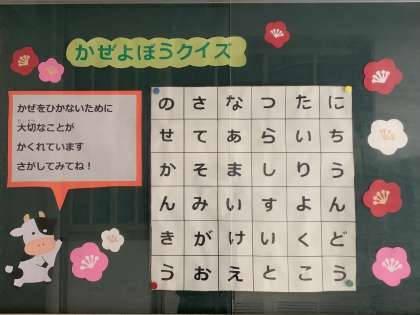 かぜよぼうクイズ
かぜをひかないために
大切なことが
かくれています
さがしてみてね！
のさなつたに
せてあらいち
かそましりう
んみいすよん
きがけいくど
うおえとこう